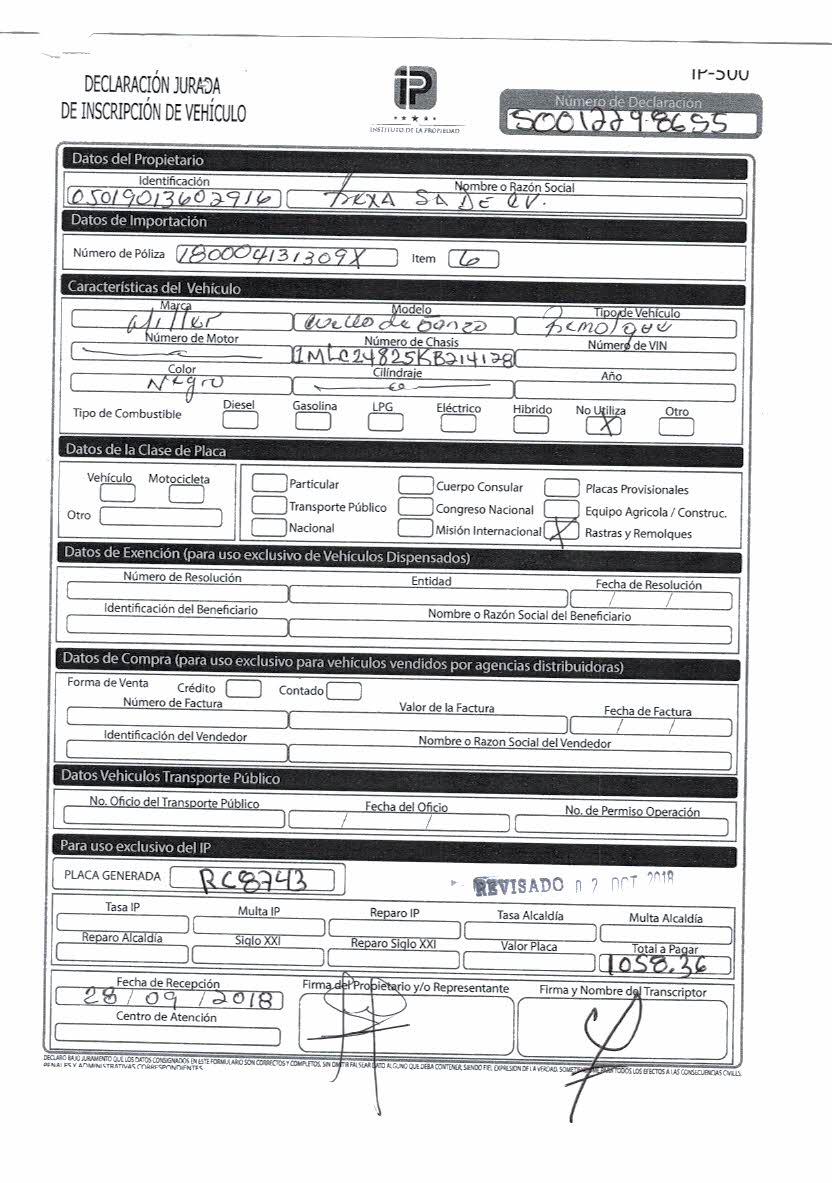 IP-500
DECLARACIÓN JURADA
DE INSCRIPCIÓN DE VEHÍCULO
iP
INSTITUTO DE LA PROPIEDAD
Número de Declaración
50012298655
Datos del Propietario
Identificación Nombre o Razón Social
05019013602916 SA DE CV.
Datos de Importación
Número de Póliza 180004131309X Item 6
Características del Vehículo
Marca Modelo Tipo de Vehículo
Miller Cuello de Ganzo Remolque
Número de Motor Número de Chasis Número de VIN
1MLC24825KB214128
Color Cilíndraje Año
Negro
Tipo de Combustible Diesel Gasolina LPG Eléctrico Hibrido No Utiliza Otro
X
Datos de la Clase de Placa
Vehículo Motocicleta
Otro
Particular Cuerpo Consular Placas Provisionales
Transporte Público Congreso Nacional Equipo Agricola / Construc.
Nacional Misión Internacional X Rastras y Remolques
Datos de Exención (para uso exclusivo de Vehículos Dispensados)
Número de Resolución Entidad Fecha de Resolución
/ /
Identificación del Beneficiario Nombre o Razón Social del Beneficiario
Datos de Compra (para uso exclusivo para vehículos vendidos por agencias distribuidoras)
Forma de Venta Crédito Contado
Número de Factura Valor de la Factura Fecha de Factura
/ /
Identificación del Vendedor Nombre o Razon Social del Vendedor
Datos Vehiculos Transporte Público
No. Oficio del Transporte Público Fecha del Oficio No. de Permiso Operación
/ /
Para uso exclusivo del IP
PLACA GENERADA RC8743 REVISADO 02 OCT 2018
Tasa IP Multa IP Reparo IP Tasa Alcaldía Multa Alcaldía
Reparo Alcaldía Siglo XXI Reparo Siglo XXI Valor Placa Total a Pagar
1058.36
Fecha de Recepción Firma del Propietario y/o Representante Firma y Nombre del Transcriptor
28 / 09 / 2018
Centro de Atención
DECLARO BAJO JURAMENTO QUE LOS DATOS CONSIGNADOS EN ESTE FORMULARIO SON CORRECTOS Y COMPLETOS, SIN OMITIR FALSEAR DATO ALGUNO QUE DEBA CONTENER, SIENDO FIEL EXPRESION DE LA VERDAD, SOMETIENDOME PARA TODOS LOS EFECTOS A LAS CONSECUENCIAS CIVILES,
PENALES Y ADMINISTRATIVAS CORRESPONDIENTES